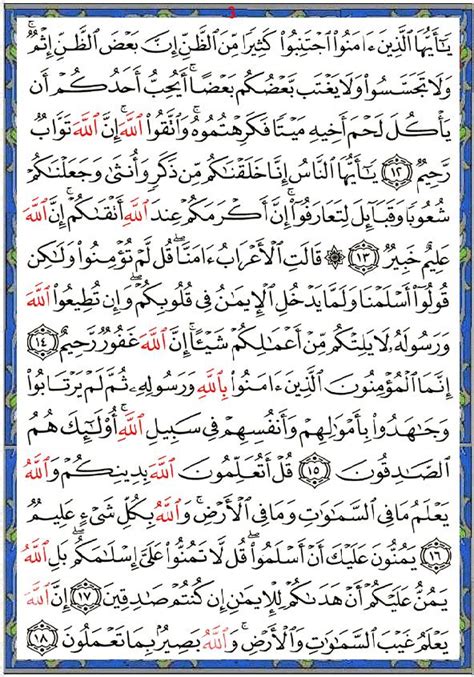 3
يَـٰٓأَيُّهَا ٱلَّذِينَ ءَامَنُوا۟ ٱجْتَنِبُوا۟ كَثِيرًا مِّنَ ٱلظَّنِّ إِنَّ بَعْضَ ٱلظَّنِّ إِثْمٌ ۖ
وَلَا تَجَسَّسُوا۟ وَلَا يَغْتَب بَّعْضُكُم بَعْضًا ۚ أَيُحِبُّ أَحَدُكُمْ أَن
يَأْكُلَ لَحْمَ أَخِيهِ مَيْتًا فَكَرِهْتُمُوهُ ۚ وَٱتَّقُوا۟ ٱللَّهَ ۚ إِنَّ ٱللَّهَ تَوَّابٌ
رَّحِيمٌ ١٢ يَـٰٓأَيُّهَا ٱلنَّاسُ إِنَّا خَلَقْنَـٰكُم مِّن ذَكَرٍ وَأُنثَىٰ وَجَعَلْنَـٰكُمْ
شُعُوبًا وَقَبَآئِلَ لِتَعَارَفُوٓا۟ ۚ إِنَّ أَكْرَمَكُمْ عِندَ ٱللَّهِ أَتْقَىٰكُمْ ۚ إِنَّ ٱللَّهَ
عَلِيمٌ خَبِيرٌ ١٣ ۞ قَالَتِ ٱلْأَعْرَابُ ءَامَنَّا ۖ قُل لَّمْ تُؤْمِنُوا۟ وَلَـٰكِن
قُولُوٓا۟ أَسْلَمْنَا وَلَمَّا يَدْخُلِ ٱلْإِيمَـٰنُ فِى قُلُوبِكُمْ ۖ وَإِن تُطِيعُوا۟ ٱللَّهَ
وَرَسُولَهُۥ لَا يَلِتْكُم مِّنْ أَعْمَـٰلِكُمْ شَيْـًٔا ۚ إِنَّ ٱللَّهَ غَفُورٌ رَّحِيمٌ ١٤
إِنَّمَا ٱلْمُؤْمِنُونَ ٱلَّذِينَ ءَامَنُوا۟ بِٱللَّهِ وَرَسُولِهِۦ ثُمَّ لَمْ يَرْتَابُوا۟
وَجَـٰهَدُوا۟ بِأَمْوَٰلِهِمْ وَأَنفُسِهِمْ فِى سَبِيلِ ٱللَّهِ ۚ أُو۟لَـٰٓئِكَ هُمُ
ٱلصَّـٰدِقُونَ ١٥ قُلْ أَتُعَلِّمُونَ ٱللَّهَ بِدِينِكُمْ وَٱللَّهُ
يَعْلَمُ مَا فِى ٱلسَّمَـٰوَٰتِ وَمَا فِى ٱلْأَرْضِ ۚ وَٱللَّهُ بِكُلِّ شَىْءٍ عَلِيمٌ
١٦ يَمُنُّونَ عَلَيْكَ أَنْ أَسْلَمُوا۟ ۖ قُل لَّا تَمُنُّوا۟ عَلَىَّ إِسْلَـٰمَكُم ۖ بَلِ ٱللَّهُ
يَمُنُّ عَلَيْكُمْ أَنْ هَدَىٰكُمْ لِلْإِيمَـٰنِ إِن كُنتُمْ صَـٰدِقِينَ ١٧ إِنَّ ٱللَّهَ
يَعْلَمُ غَيْبَ ٱلسَّمَـٰوَٰتِ وَٱلْأَرْضِ ۚ وَٱللَّهُ بَصِيرٌۢ بِمَا تَعْمَلُونَ ١٨